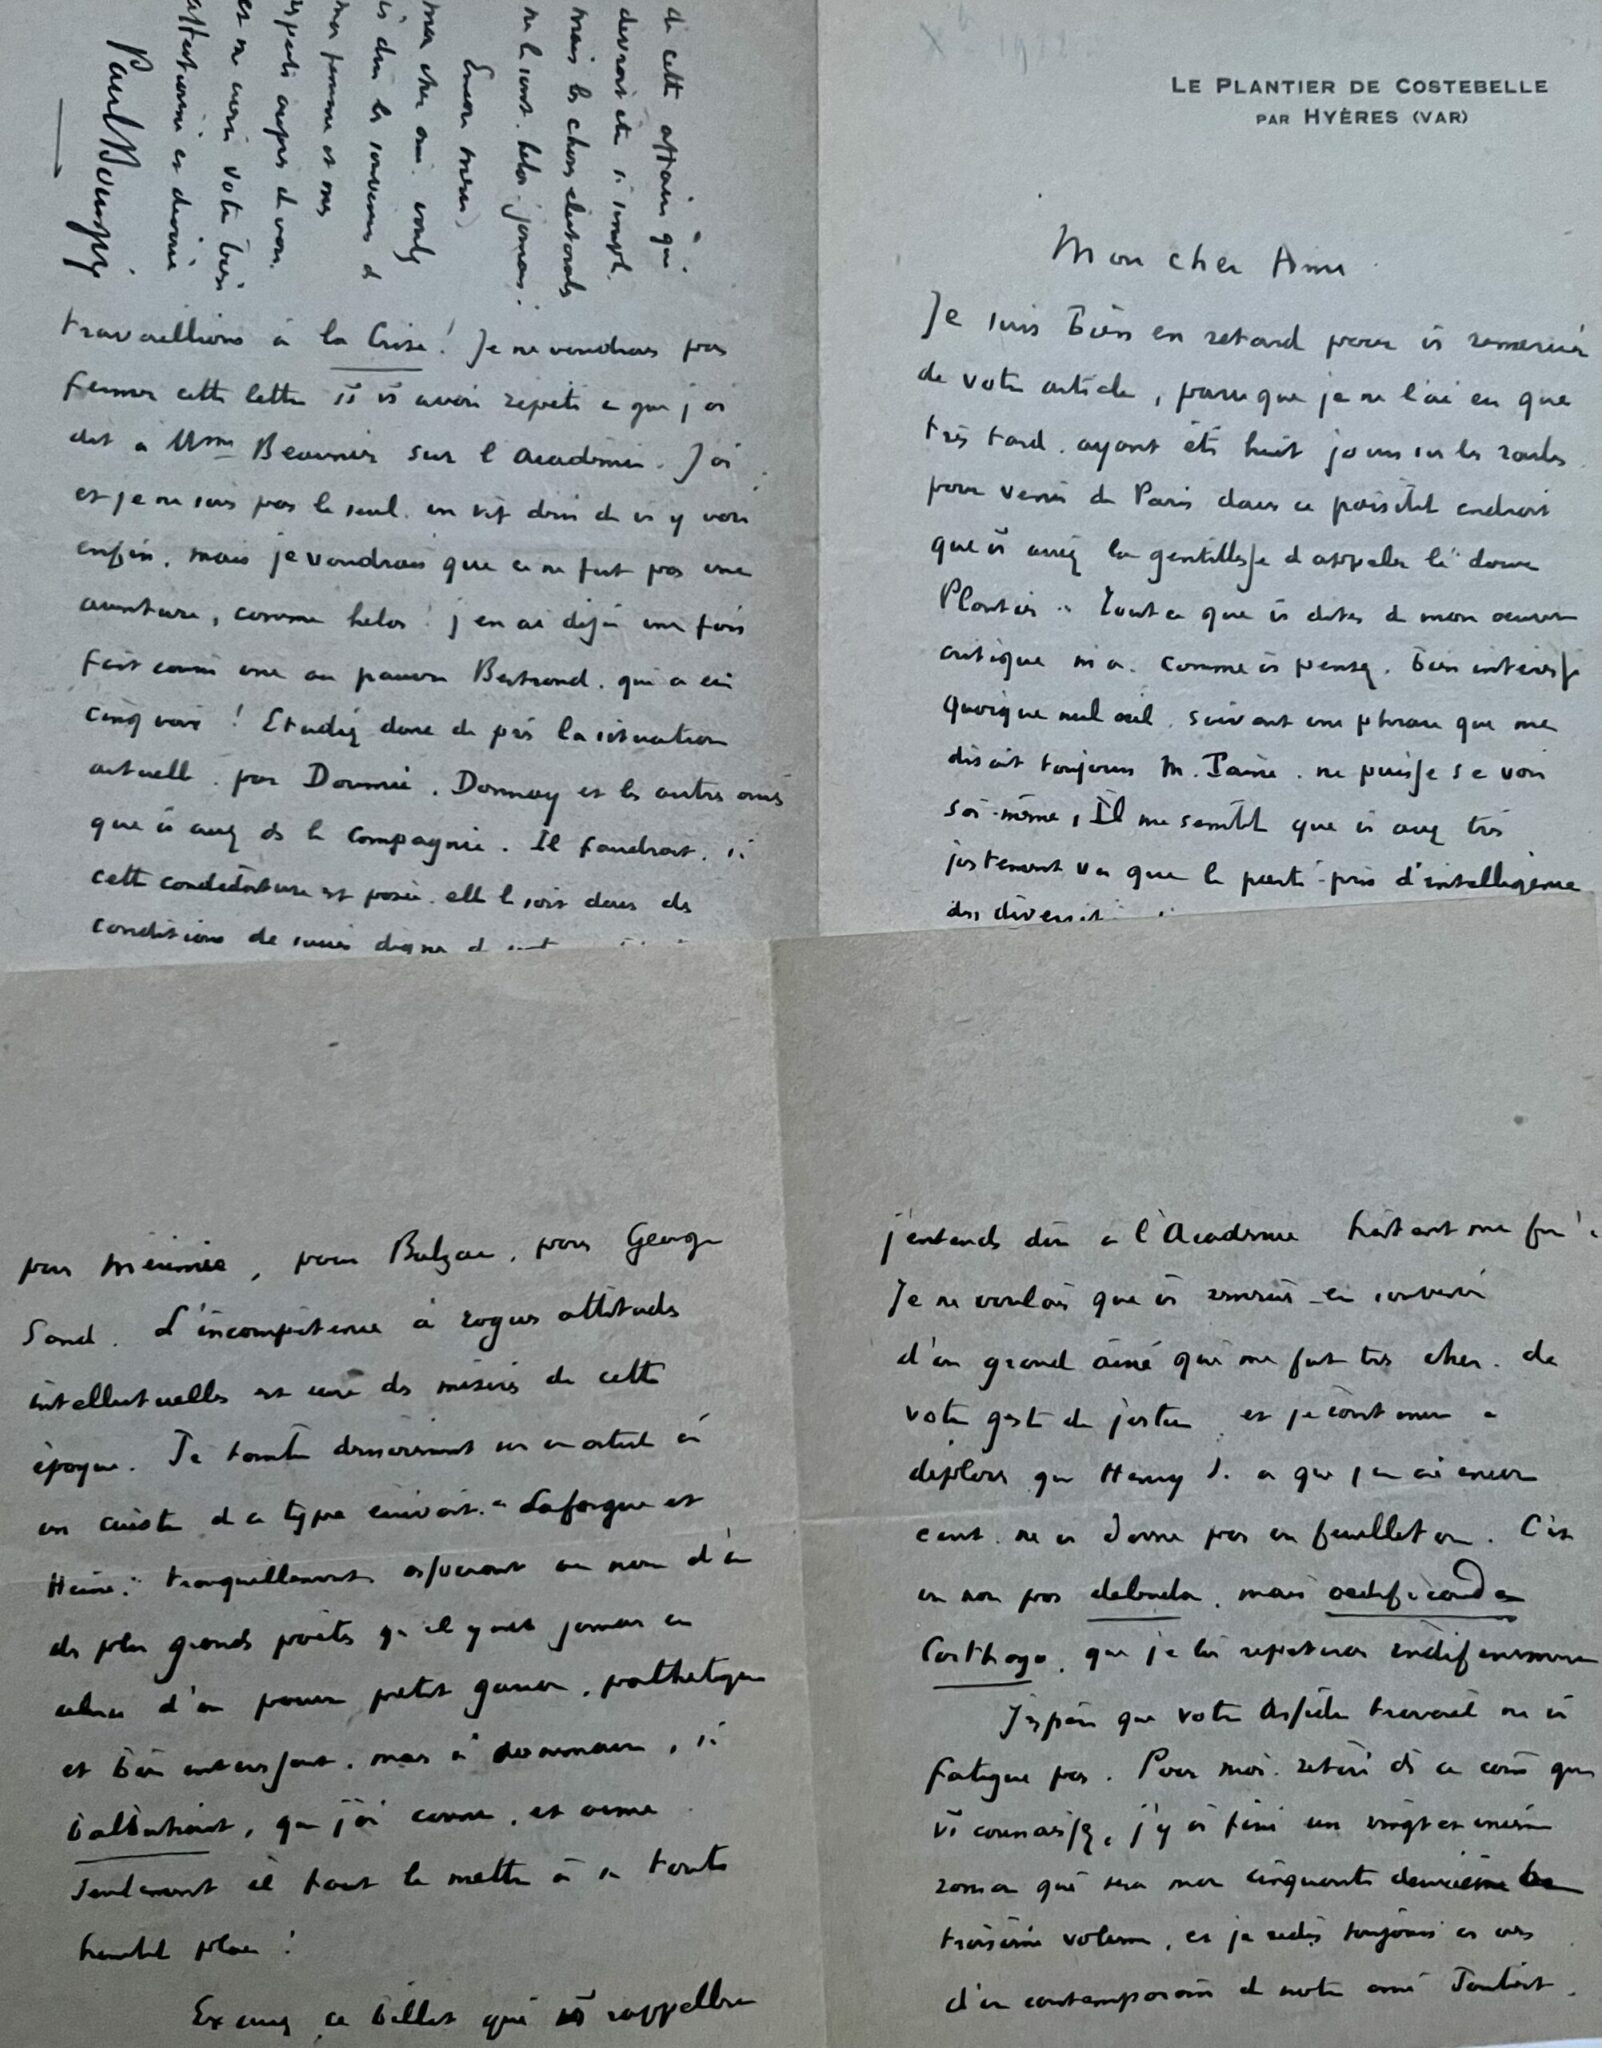 LE PLANTIER DE COSTEBELLE
PAR HYÈRES (VAR)
Mon cher Ami
Je suis bien en retard pour vs remercier
de votre article, parce que je ne l'ai eu que
très tard, ayant été huit jours sur les routes
pour venir de Paris dans ce paisible endroit
que vs avez la gentillesse d'appeler le "doux
Plantier". Tout ce que vs dites de mon œuvre
critique m'a, comme vs pensez, bien intéressé
quoique nul œil, suivant une phrase que me
disait toujours M. Taine, ne puisse se voir
soi-même, Il me semble que vs avez très
justement vu que le parti-pris d'intelligence
des
pour Mérimée, pour Balzac, pour George
Sand. L'incompétence à rogues attitudes
intellectuelles est une des misères de cette
époque. Je tombe dernièrement sur un article où
un cuistre de ce type écrivait : "Laforgue et
Heine." tranquillement, au nom d'un
des plus grands poètes qu'il y ait jamais eu
celui d'un pauvre petit gamin, pathétique
et bien intéressant, mais si, si
balbutiant, que j'ai connu, et aimé.
Seulement il faut le mettre à sa toute
humble place !
Excusez ce billet qui vs rappellera
j'entends dire à l'Académie
Je ne voulais que vs remercier en souvenir
d'un grand aîné qui me fut très cher, de
votre geste de justice, et je continue à
déplorer que Henry S. à qui j'en ai encore
écrit, ne vs donne pas un feuilleton. C'est
un non pas delenda, mais aedificanda
Carthago, que je lui répéterai indéfiniment
J'espère que votre assidu travail ne vs
fatigue pas. Pour moi, retiré ds ce coin que
vs connaissez, j'y ai fini un vingt et unième
roman qui sera mon cinquante deuxième
troisième volume, et je redis toujours ces vers
d'un contemporain de notre ami Joubert.
travaillions à la Crise ! Je ne voudrais pas
fermer cette lettre ss vs avoir répété ce que j'ai
dit à Mme Beaunier sur l'Académie. J'ai
et je ne suis pas le seul, un vif désir de vs y voir
enfin, mais je voudrais que ce ne fut pas une
aventure, comme hélas ! j'en ai déjà une fois
fait courir une au pauvre Bertrand, qui a eu
cinq voix ! Etudiez donc de près la situation
actuelle, par Doumic, Donnay et les autres amis
que vs avez ds la Compagnie. Il faudrait, si
cette candidature est posée, elle le soit dans des
conditions de succès digne de
de cette affaire qui
devrait être si simple,
mais les choses électorales
ne le sont, hélas ! jamais.
Encore merci,
mon cher ami, voulez
vs dire les souvenirs de
ma femme et mes
respects auprès de vous,
et me croire votre bien
affectionné et dévoué
Paul Bourget